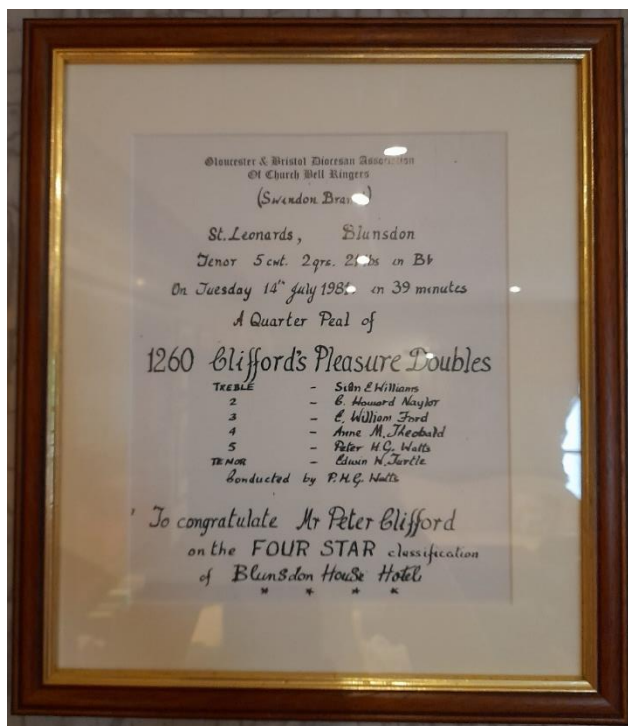 Gloucester & Bristol Diocesan Association
Of Church Bell Ringers
(Swindon Branch)
St. Leonards, Blunsdon
Tenor 5 cwt. 2 qrs. in Bb
On Tuesday 14th July in 39 minutes
A Quarter Peal of
1260 Clifford's Pleasure Doubles
TREBLE - Siân E Williams
2 - C. Howard Naylor
3 - C. William Ford
4 - Anne M. Theobald
5 - Peter H.G. Watts
TENOR - Edwin W. Turtle
Conducted by P.H.G. Watts
To congratulate Mr Peter Clifford
on the FOUR STAR classification
of Blunsdon House Hotel
* * * *